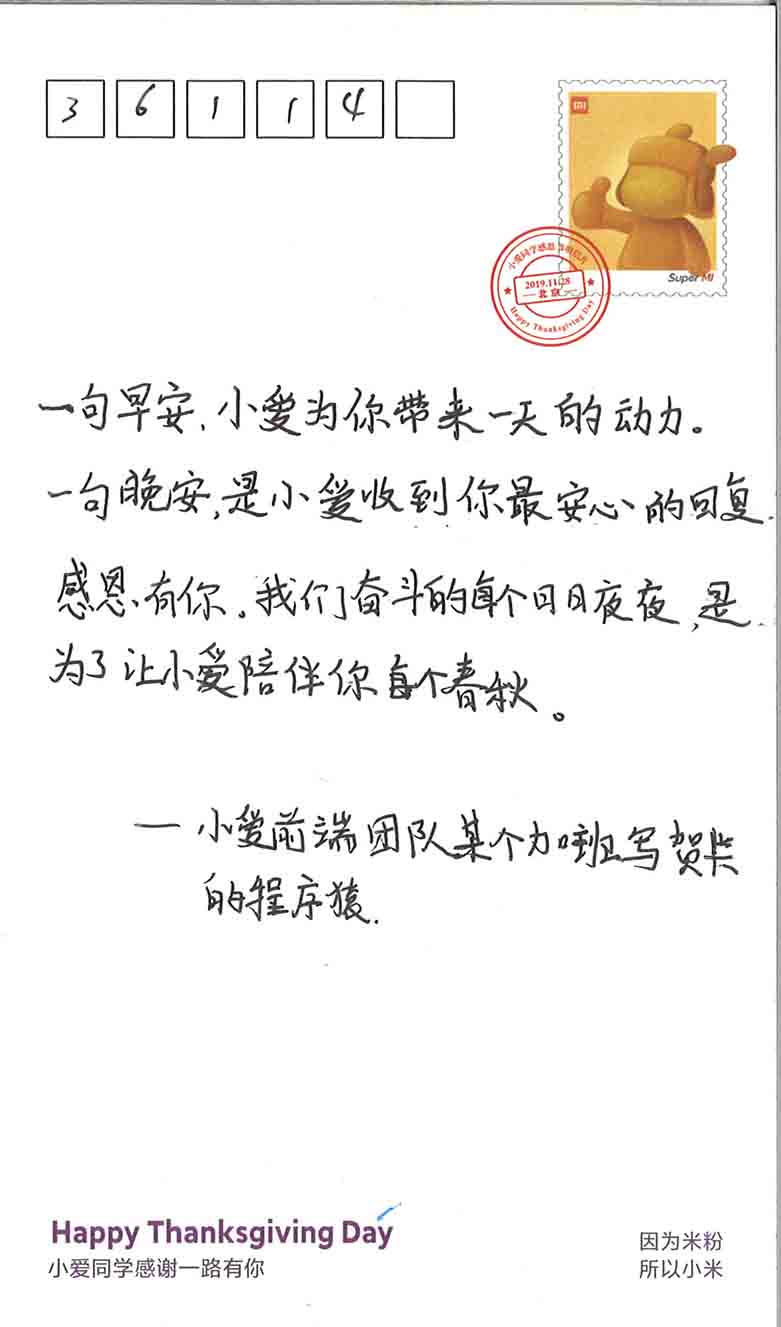 3 6 1 1 4
小爱同学感恩节明信片
2019.11.28
北京
Happy Thanksgiving Day
Super MI
一句早安,小爱为你带来一天的动力。
一句晚安,是小爱收到你最安心的回复.
感恩有你。我们奋斗的每个日日夜夜,是
为了让小爱陪伴你每个春秋。
— 小爱前端团队某个加班写贺卡
的程序猿.
Happy Thanksgiving Day
小爱同学感谢一路有你
因为米粉
所以小米